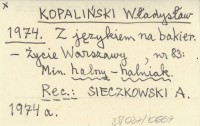 x
KOPALIŃSKI Władysław
1974. Z językiem na bakier.
– Życie Warszawy, nr 83:
Min. halny – halniak.
Rec.: SIECZKOWSKI A.
1974 a.